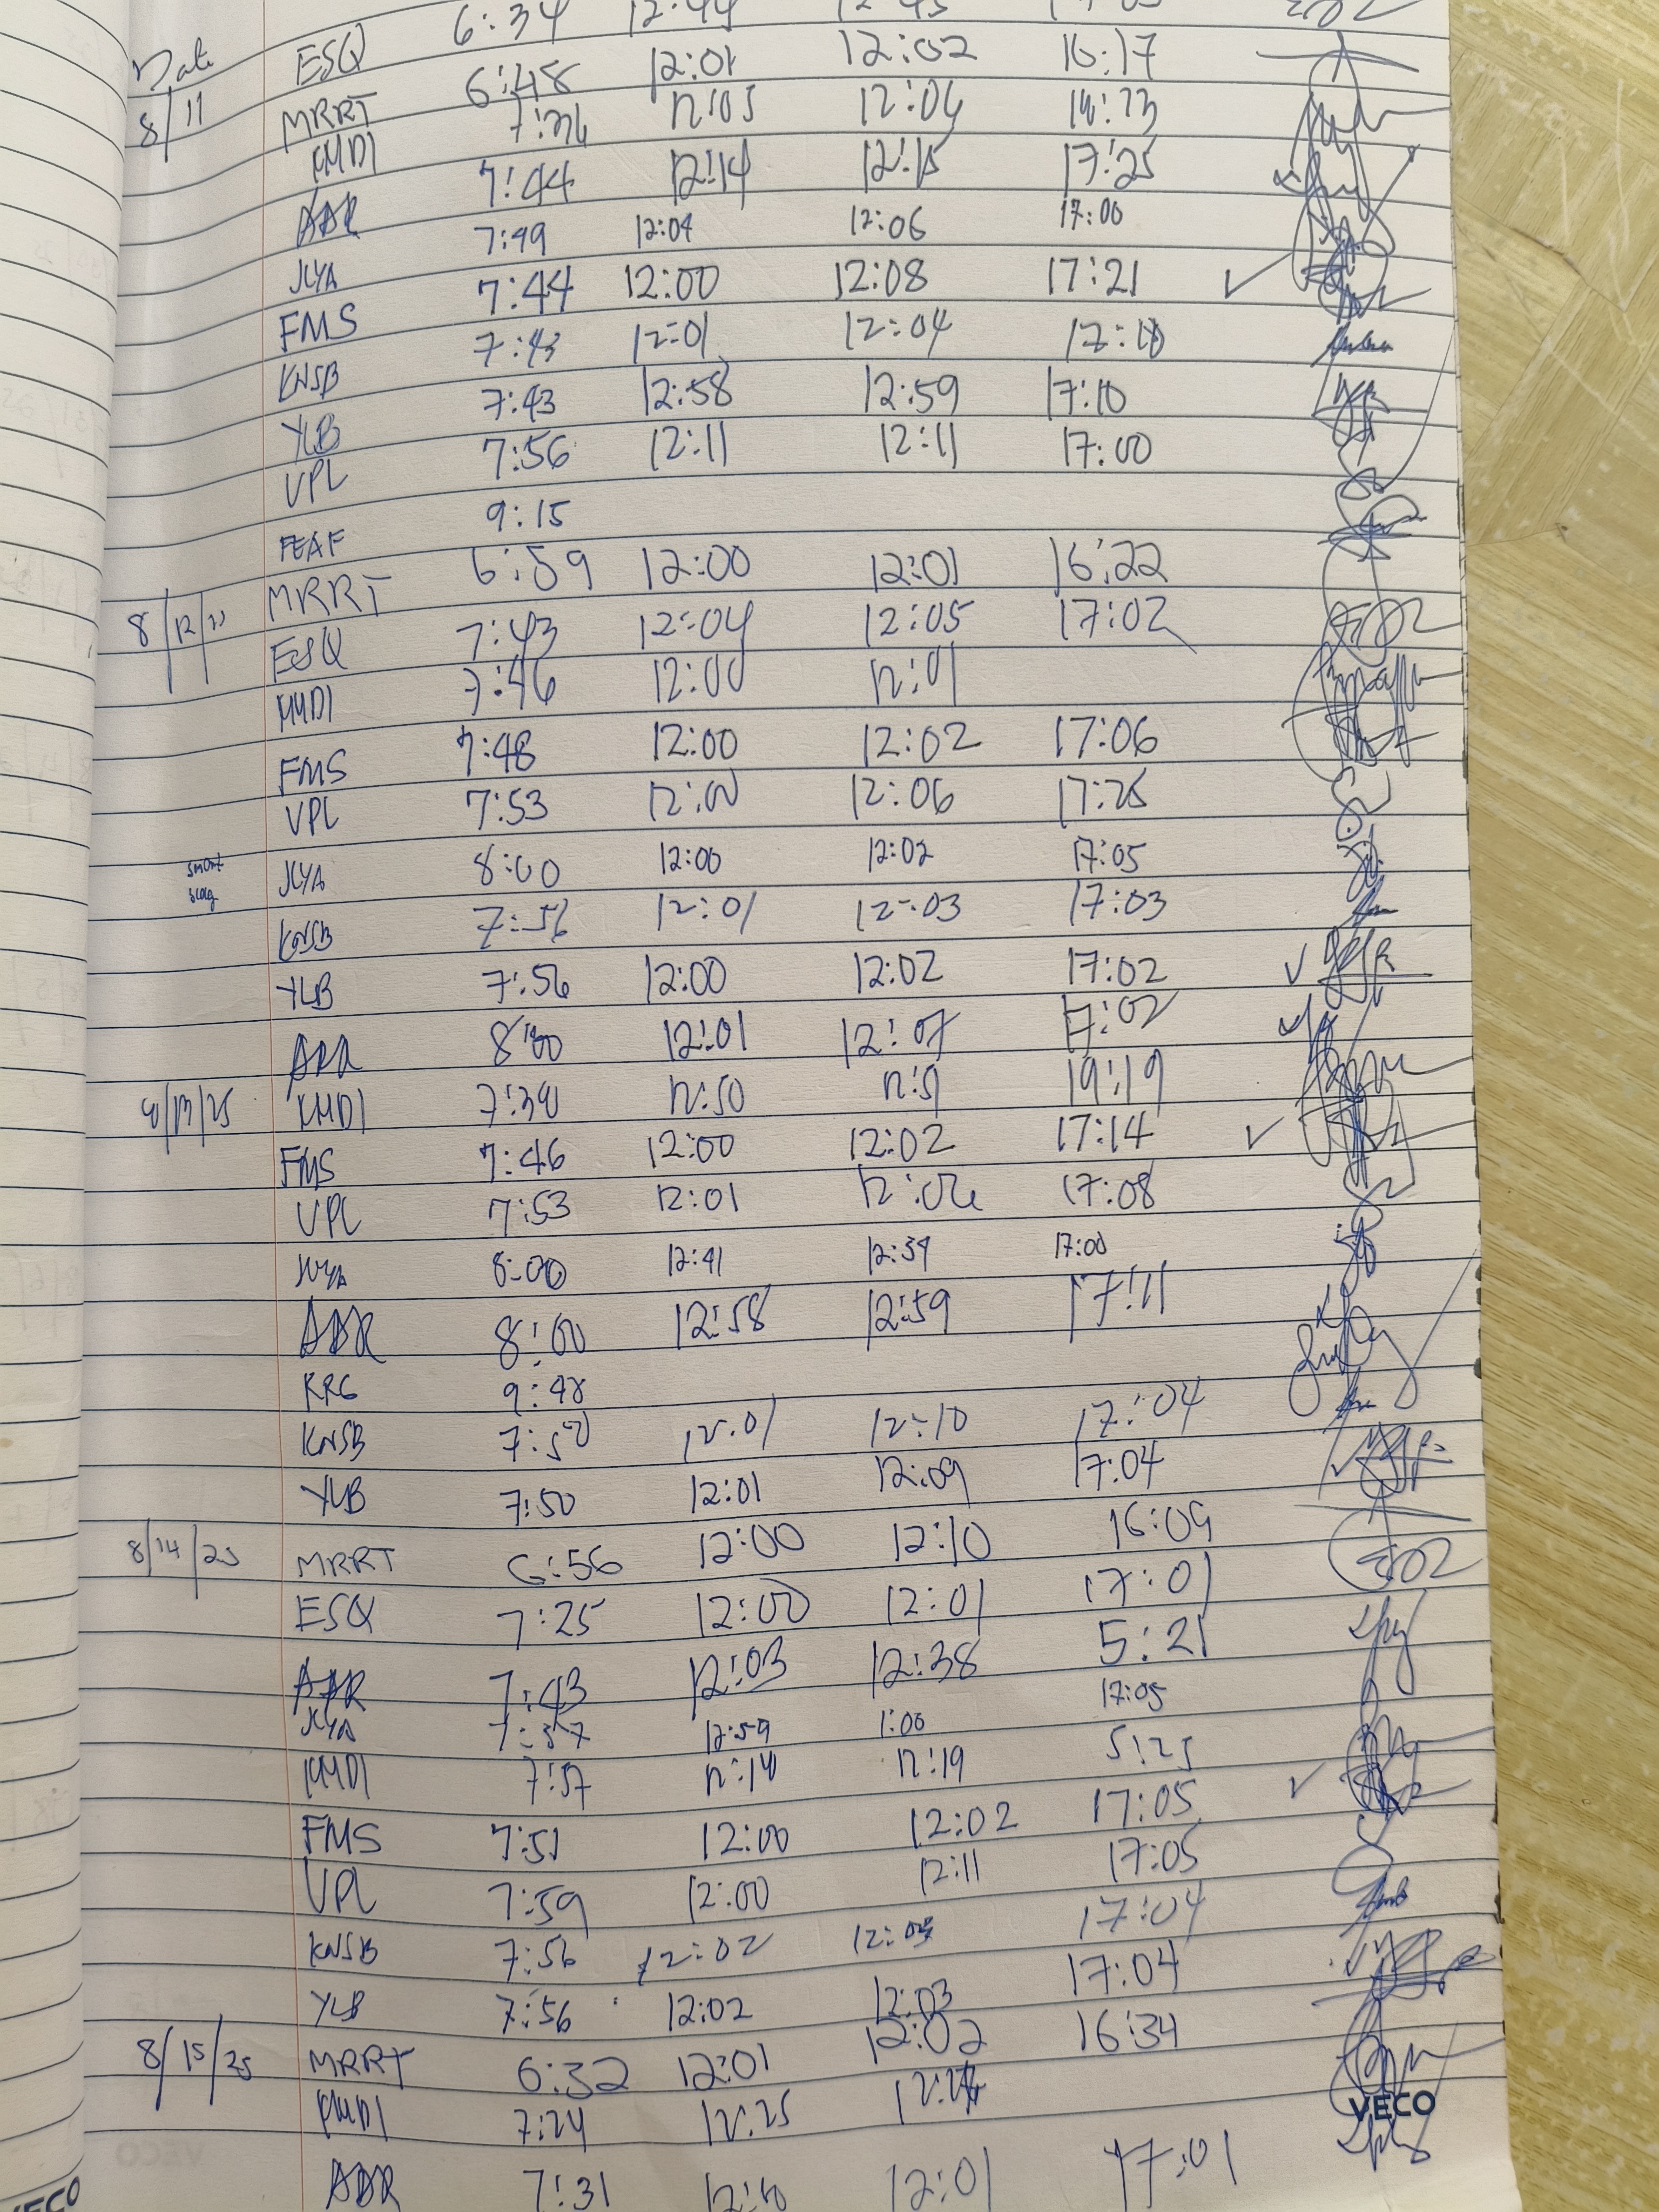 Date ESQ 6:34 12:44
8/11 MRRT 6:48 12:01 12:02 16:17
KMDI 7:36 12:05 12:06 14:23
ADR 7:44 12:14 12:15 17:25
JLYA 7:49 12:04 12:06 17:00
FMS 7:44 12:00 12:08 17:21 ✓
KNSB 7:43 12:01 12:04 17:10
YLB 7:43 12:58 12:59 17:10
VPL 7:56 12:11 12:11 17:00
FEAF 9:15
8/12/25 MRRT 6:59 12:00 12:01 16:22
ESQ 7:43 12:04 12:05 17:02
KMDI 7:46 12:00 12:01
FMS 7:48 12:00 12:02 17:06
VPL 7:53 12:00 12:06 17:25
JLYA 8:00 12:00 12:02 17:05
KNSB 7:56 12:01 12:03 17:03
YLB 7:56 12:00 12:02 17:02 ✓
ADR 8:00 12:01 12:07 17:02
8/13/25 KMDI 7:39 12:50 12:51 19:19
FMS 7:46 12:00 12:02 17:14 ✓
VPL 7:53 12:01 12:06 17:08
JLYA 8:00 12:41 17:00
ADR 8:00 12:58 12:59 17:11
KRG 9:48
KNSB 7:50 12:01 12:10 17:04
YLB 7:50 12:01 12:09 17:04
8/14/25 MRRT 6:56 12:00 12:10 16:09
ESQ 7:25 12:00 12:01 17:01
ADR 7:43 12:03 12:38 5:21
JLYA 7:57 12:59 1:00 17:05
KMDI 7:57 12:14 12:19 5:25
FMS 7:51 12:00 12:02 17:05 ✓
VPL 7:59 12:00 12:11 17:05
KNSB 7:56 12:02 17:04
YLB 7:56 12:02 12:03 17:04
8/15/25 MRRT 6:32 12:01 12:02 16:34
KMDI 7:24 12:25
VECO
ADR 7:31 12:01 17:01